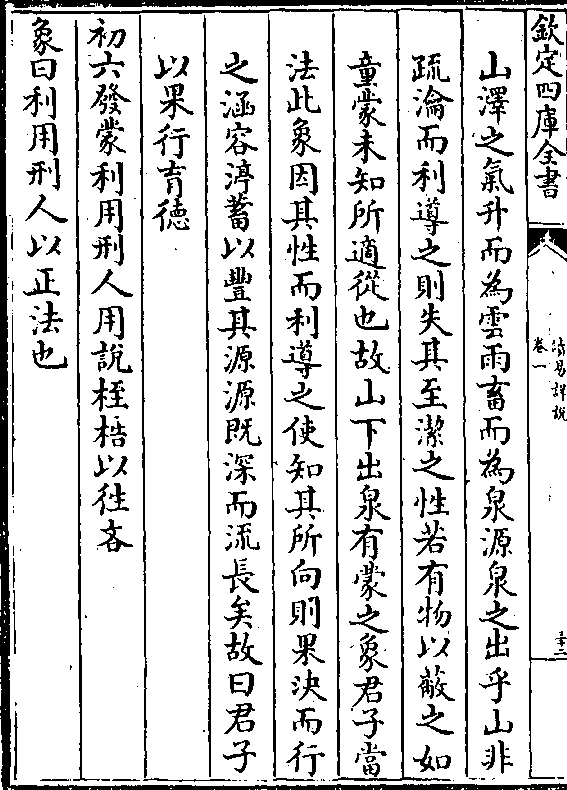 欽定四庫全書
讀易詳說
卷一
山澤之氣升而為雲雨畜而為泉源泉之出乎山非
疏瀹而利導之則失其至潔之性若有物以蔽之如
童蒙未知所適從也故山下出泉有蒙之象君子當
法此象因其性而利導之使知其所向則果決而行
之涵容渟蓄以豐其源源既深而流長矣故曰君子
以果行育德
初六發蒙利用刑人用說桎梏以往吝
象曰利用刑人以正法也